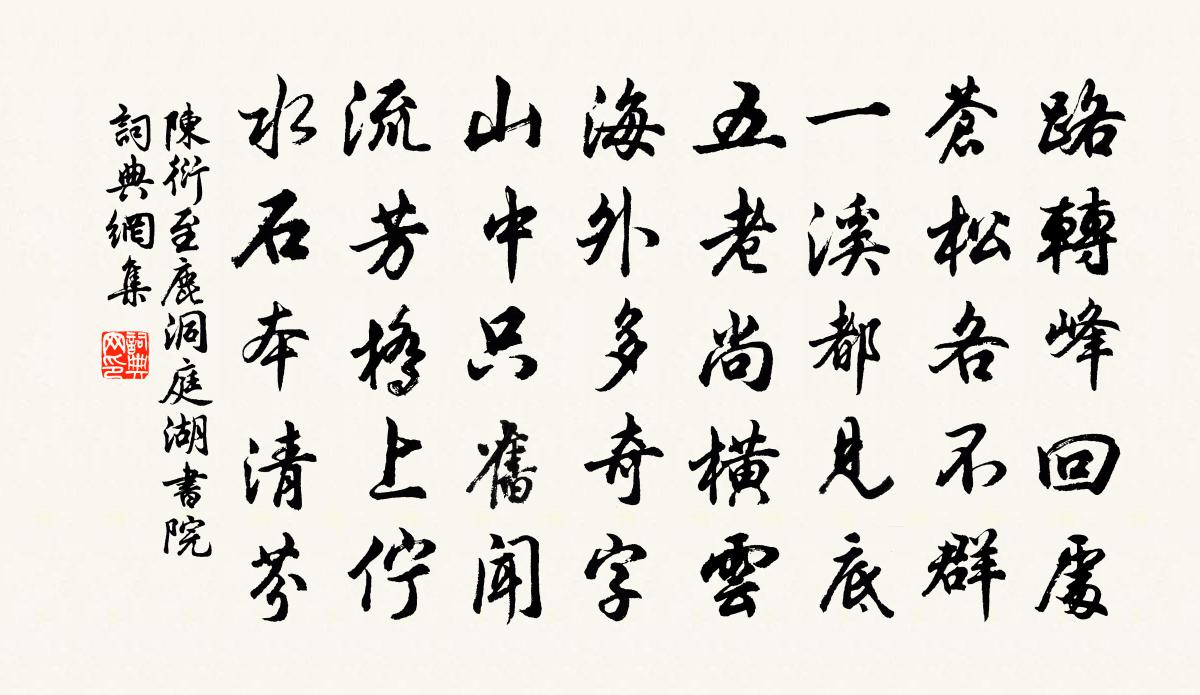 路轉峰回處
蒼松各不群
一溪都見底
五老尚橫雲
海外多奇字
山中只舊聞
流芳橋上佇
水石本清芬
陳衍至鹿洞庭湖書院
詞典網集
詞典网印